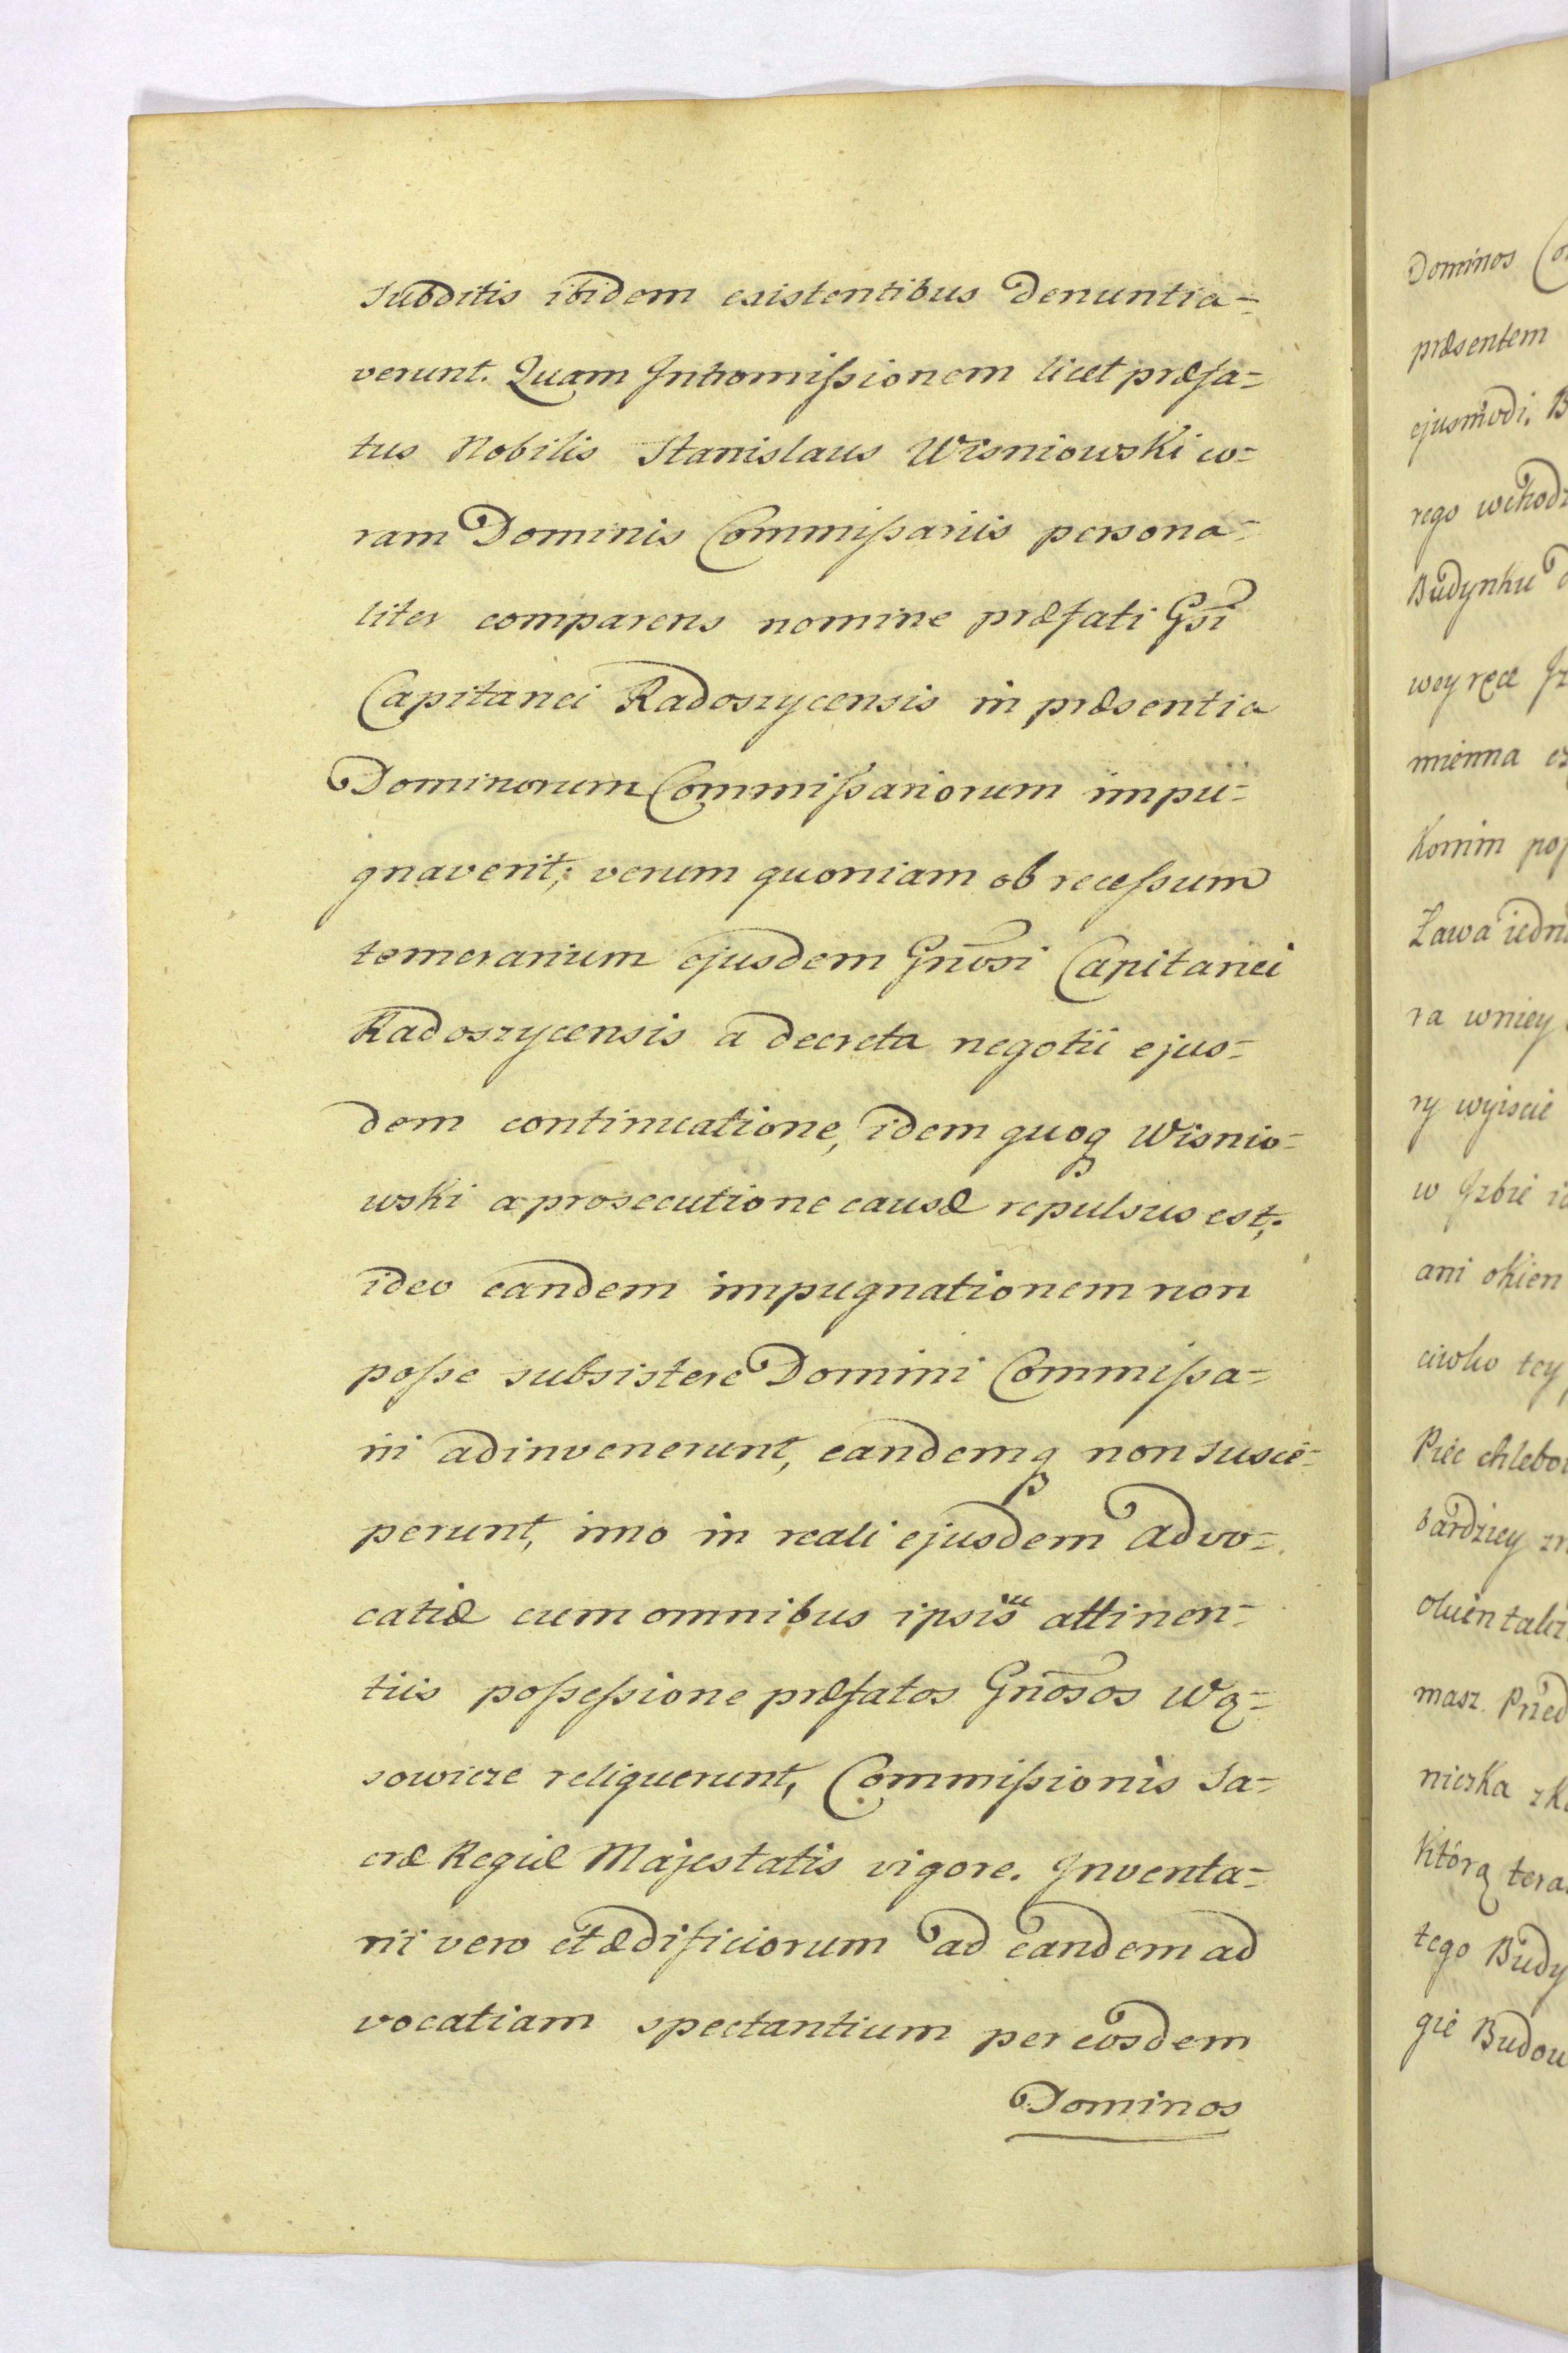 Subditis ibidem existentibus Denuntia=
verunt. Quam Intromißionem licet præfa=
tus Nobilis Stanislaus Wisniowski co=
ram Dominis Commißariis persona=
liter comparens nomine præfati Gsi
Capitanei Radoszycensis in præsentia
Dominorum Commißariorum impu=
gnaverit; verum quoniam ob receßum
temerarium ejusdem Gnosi Capitanei
Radoszycensis a decreta negotii ejus=
dem continuatione, idem quoq Wisnio=
wski a prosecutione causæ repulsus est;
ideo eandem impugnationem non
poße subsistere Domini Commißa=
rii adinvenerunt, eandemq non susce=
perunt, imo in reali ejusdem Advo=
catiæ cum omnibus ipsius attinen=
tiis poßeßione præfatos Gnosos Wą=
sowicze reliquerunt, Commißionis Sa=
cræ Regiæ Majestatis vigore. Inventa=
rii vero et ædificiorum ad eandem ad
vocatiam spectantium per eosdem
Dominos
Dominos
præsentem
ejusmodi. B
rego wchodz
Budynku
wey ręce
mienna
Komin
Ława iedn
ra wniey
ry wyiscie
w Izbie
ani okien
tey
Piec chlebo
bardziey
masz.
niczka
którą tera
tego Budy
gie Budow